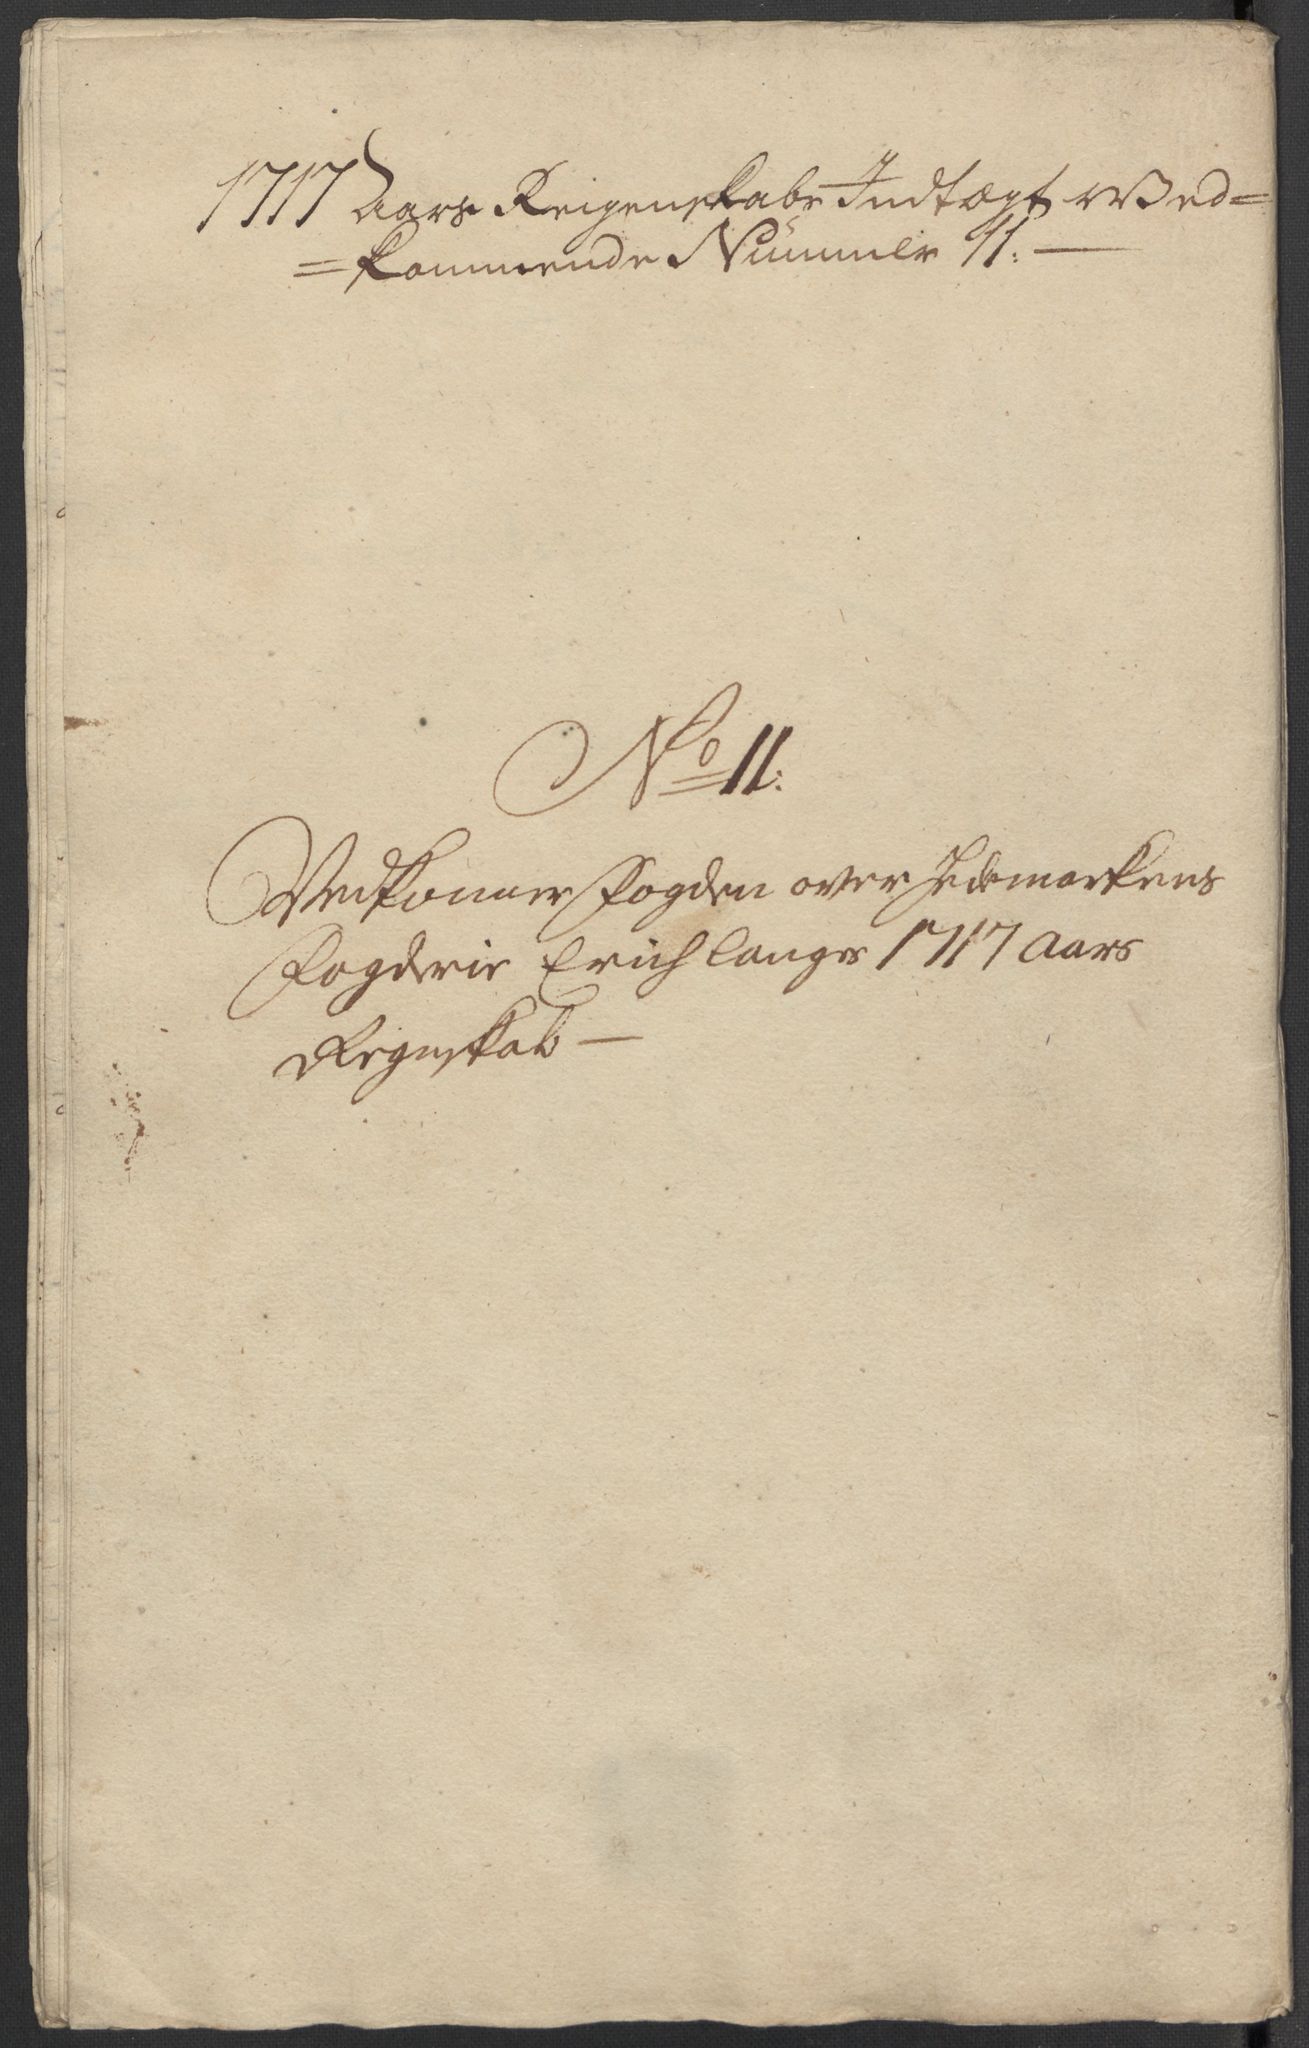 1717 Aars Reigenskabs Indtægt Wed=
=kommende Nümmer 11. —
No 11:
Vedkommer Fogden over Hedemarkens
Fogderie Erich Langes 1717 Aars
Regnskab —